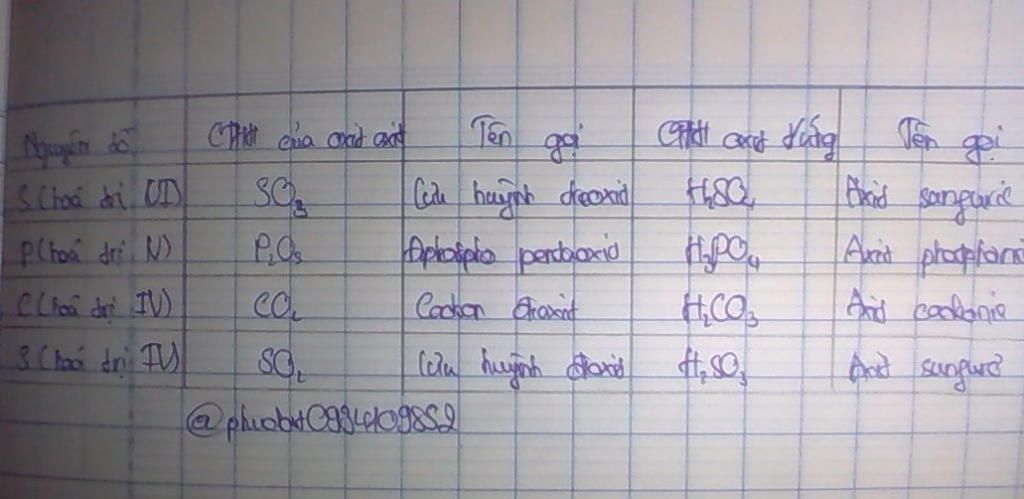 Nguyên tố CTHH của oxit axit Tên gọi CTHH axit tương ứng Tên gọi
S (hoá trị VI) SO₃ Lưu huỳnh trioxit H₂SO₄ Axit sunfuric
P (hoá trị V) P₂O₅ Điphotpho pentaoxit H₃PO₄ Axit photphoric
C (hoá trị IV) CO₂ Cacbon đioxit H₂CO₃ Axit cacbonic
S (hoá trị IV) SO₂ Lưu huỳnh đioxit H₂SO₃ Axit sunfurơ